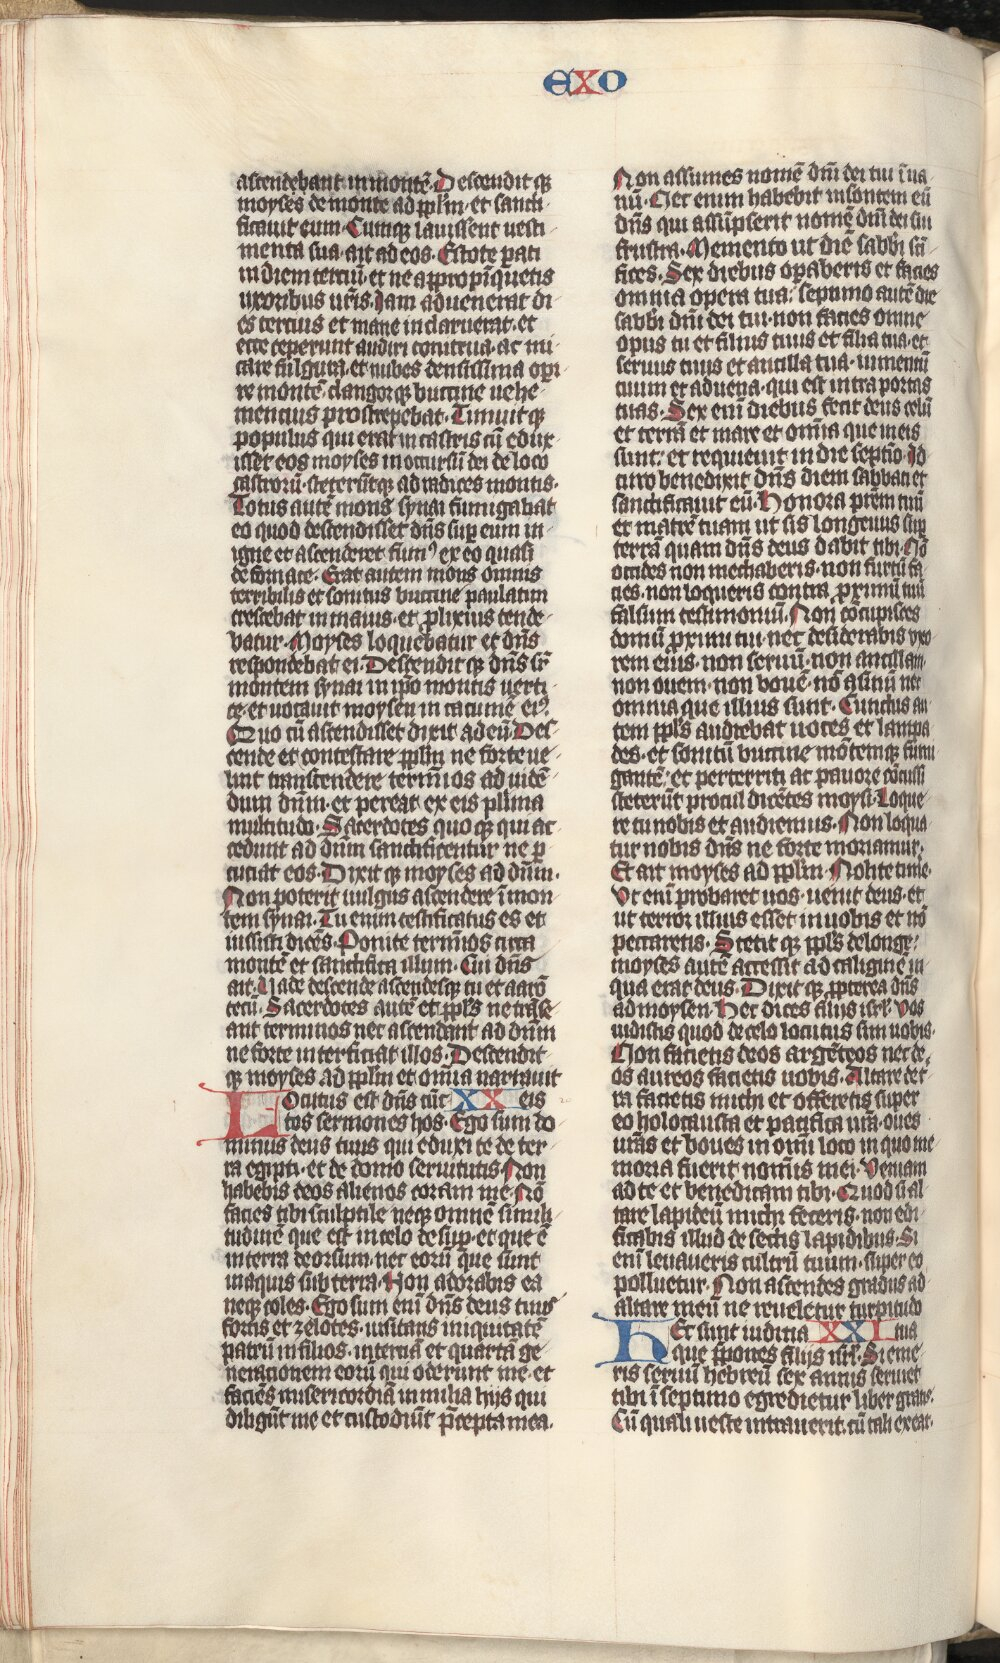 EXO
ascendebant in montē. Descendit qꝫ
moyses de monte ad ppl̄m et sancti-
ficauit eum. Cumqꝫ lauissent uesti-
menta sua. ait ad eos. Estote pati
in diem terciū. et ne appropīquetis
uxoribus ur̄is. Jam aduenerat di-
es tercius et mane inclaruerat. et
ecce ceperunt audiri tonitrua. ac mi-
care fulgura. et nubes densissima opi-
re montē. clangorqꝫ buccine uehe-
mencius prostrepebat. Timuit qꝫ
populus qui erat in castris cū edux-
isset eos moyses in occursū dei de loco
castrorū. steterūtqꝫ ad radices montis.
Totus autē mons synai fumigabat
eo quod descendisset dn̄s sup eum in
igne et ascenderet fum⁹ ex eo quasi
de fornace. Erat autem mons omnis
terribilis et sonitus buccine paulatim
crescebat in maius. et plixius tende-
batur. Moyses loquebatur et dn̄s
respondebat ei. Descendit qꝫ dn̄s sr̄
montem synai in ip̄o montis uerti-
ce. et uocauit moysen in cacumē ei⁹.
Quo cū ascendisset dixit ad eū. Des-
cende et contestare ppl̄m ne forte ue-
lint transcendere term̄ios ad uidē-
dum dn̄m. et pereat ex eis pl̄ima
multitudo. Sacerdotes quo qꝫ qui ac-
cedunt ad dn̄m sanctificentur ne p-
cuciat eos. Dixit qꝫ moyses ad dn̄m.
Non poterit uulgus ascendere ī mon-
tem synai. Tu enim testificatus es et
iussisti dicēs. Ponite term̄ios circa
montē et sanctifica illum. Cui dn̄s
ait. Uade descende ascendesqꝫ tu et aarō
tecū. Sacerdotes autē et ppl̄s ne trāse-
ant terminos nec ascendant ad dn̄m
ne forte interficiat illos. Descendit-
qꝫ moyses ad ppl̄m et om̄ia narrauit
Locutus est dn̄s cūc XX eis
tos sermones hos. Ego sum do-
minus deus tuus qui eduxi te de ter-
ra egipti. et de domo seruitutis. Non
habebis deos alienos coram me. Nō
facies tibi sculptile neqꝫ omnē simili-
tudinē que est in celo desup. et que ē
in terra deorsum. nec eorū que sunt
in aquis sub terra. Non adorabis ea
neqꝫ coles. Ego sum enī dn̄s deus tuus
fortis et zelotes. uisitans iniquitatē
patrū in filios. in terciā et quartā ge-
nerationem eorū qui oderunt me. et
faciēs misericordiā in milia hijs qui
diligūt me et custodiūt p̄cepta mea.
Non assumes nomē dn̄i dei tui ī ua-
nū. Nec enim habebit insontem eū
dn̄s qui assūpserit nomē dn̄i dei sui
frustra. Memento ut diē sabbi sā-
fices. Sex diebus opaberis et facies
omnia opera tua. septimo autē die
sabbi dn̄i dei tui. non facies omne
opus tu et filius tuus et filia tua. et
seruus tuus et ancilla tua. iumentū
tuum et aduena. qui est intra portas
tuas. Sex enī diebus fecit deus celū
et terrā et mare et om̄ia que in eis
sunt. et requieuit in die septīo. Id-
circo benedixit dn̄s diem sabbati et
sanctificauit eū. Honora prēm tuū
et matrē tuam ut sis longeuus sup
terrā quam dn̄s deus dabit tibi. Nō
occides non mechaberis. non furtū fa-
cies. non loqueris contra proximū tuū
falsum testimoniū. Non cōcupisces
domū proximi tui. nec desiderabis uxo-
rem eius. non seruū. non ancillam.
non ouem. non bouē. nō asinū nec
omnia que illius sunt. Cunctus au-
tem ppl̄s audiebat uoces et lampa-
des. et sonitū buccine mōtemqꝫ fumi-
gantē. et perterriti ac pauore cōcussi
steterūt procul dicētes moysi. Loque-
re tu nobis et audiemus. Non loqua-
tur nobis dn̄s ne forte moriamur.
Et ait moyses ad ppl̄m. Nolite timē.
Ut enī probaret uos. uenit deus. et
ut terror illius esset in uobis et nō
peccaretis. Stetit qꝫ ppl̄s de longe.
moyses autē accessit ad caliginē in
qua erat deus. Dixit qꝫ ppterea dn̄s
ad moysen. Hec dices filijs isrl̄. Vos
uidistis quod de celo locutus sim uobis.
Non facietis deos argēteos nec de-
os aureos facietis uobis. Altare de t-
ra facietis michi et offeretis super
eo holocausta et pacifica ur̄a. oues
ur̄as et boues in om̄i loco in quo me-
moria fuerit nom̄is mei. Veniam
ad te et benedicam tibi. Quod si al-
tare lapideū michi feceris. non edi-
ficabis illud de sectis lapidibus. Si
enī leuaueris cultrū tuum. super eo
polluetur. Non ascendes gradus ad
altare meū ne reueletur turpitudo
Hec sunt iudicia XXI tua
que p̄pones filijs isrl̄. Si eme-
ris seruū hebreū sex annis seruiet
tibi ī septimo egredietur liber gratis.
Cū quali ueste intrauerit. cū tali exeat.